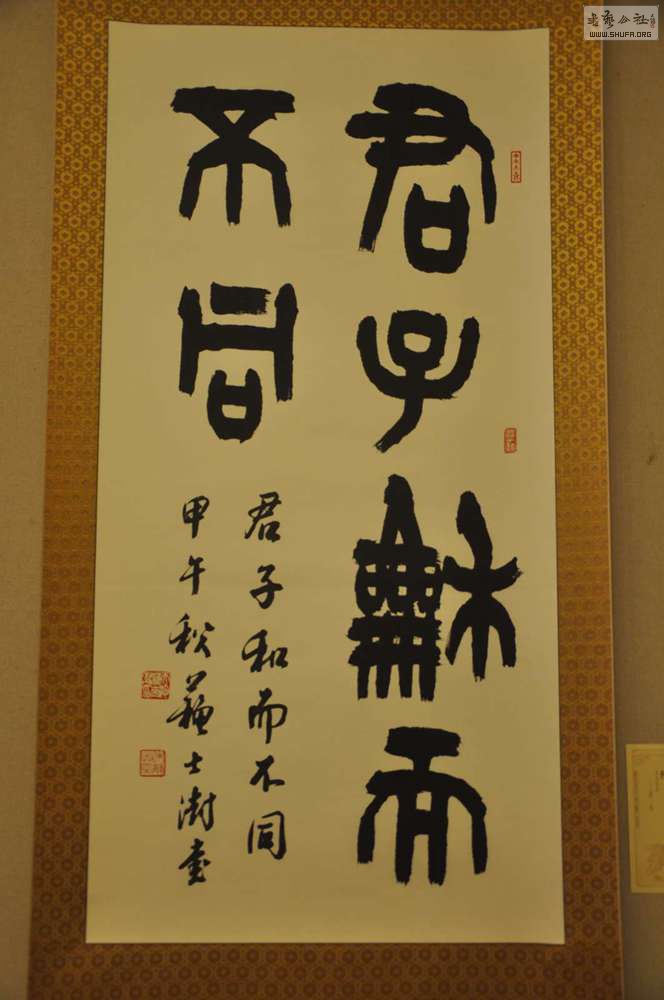 君子龢而
不同
君子和而不同
甲午秋蘇士澍書
書藝公社
WWW.SHUFA.ORG